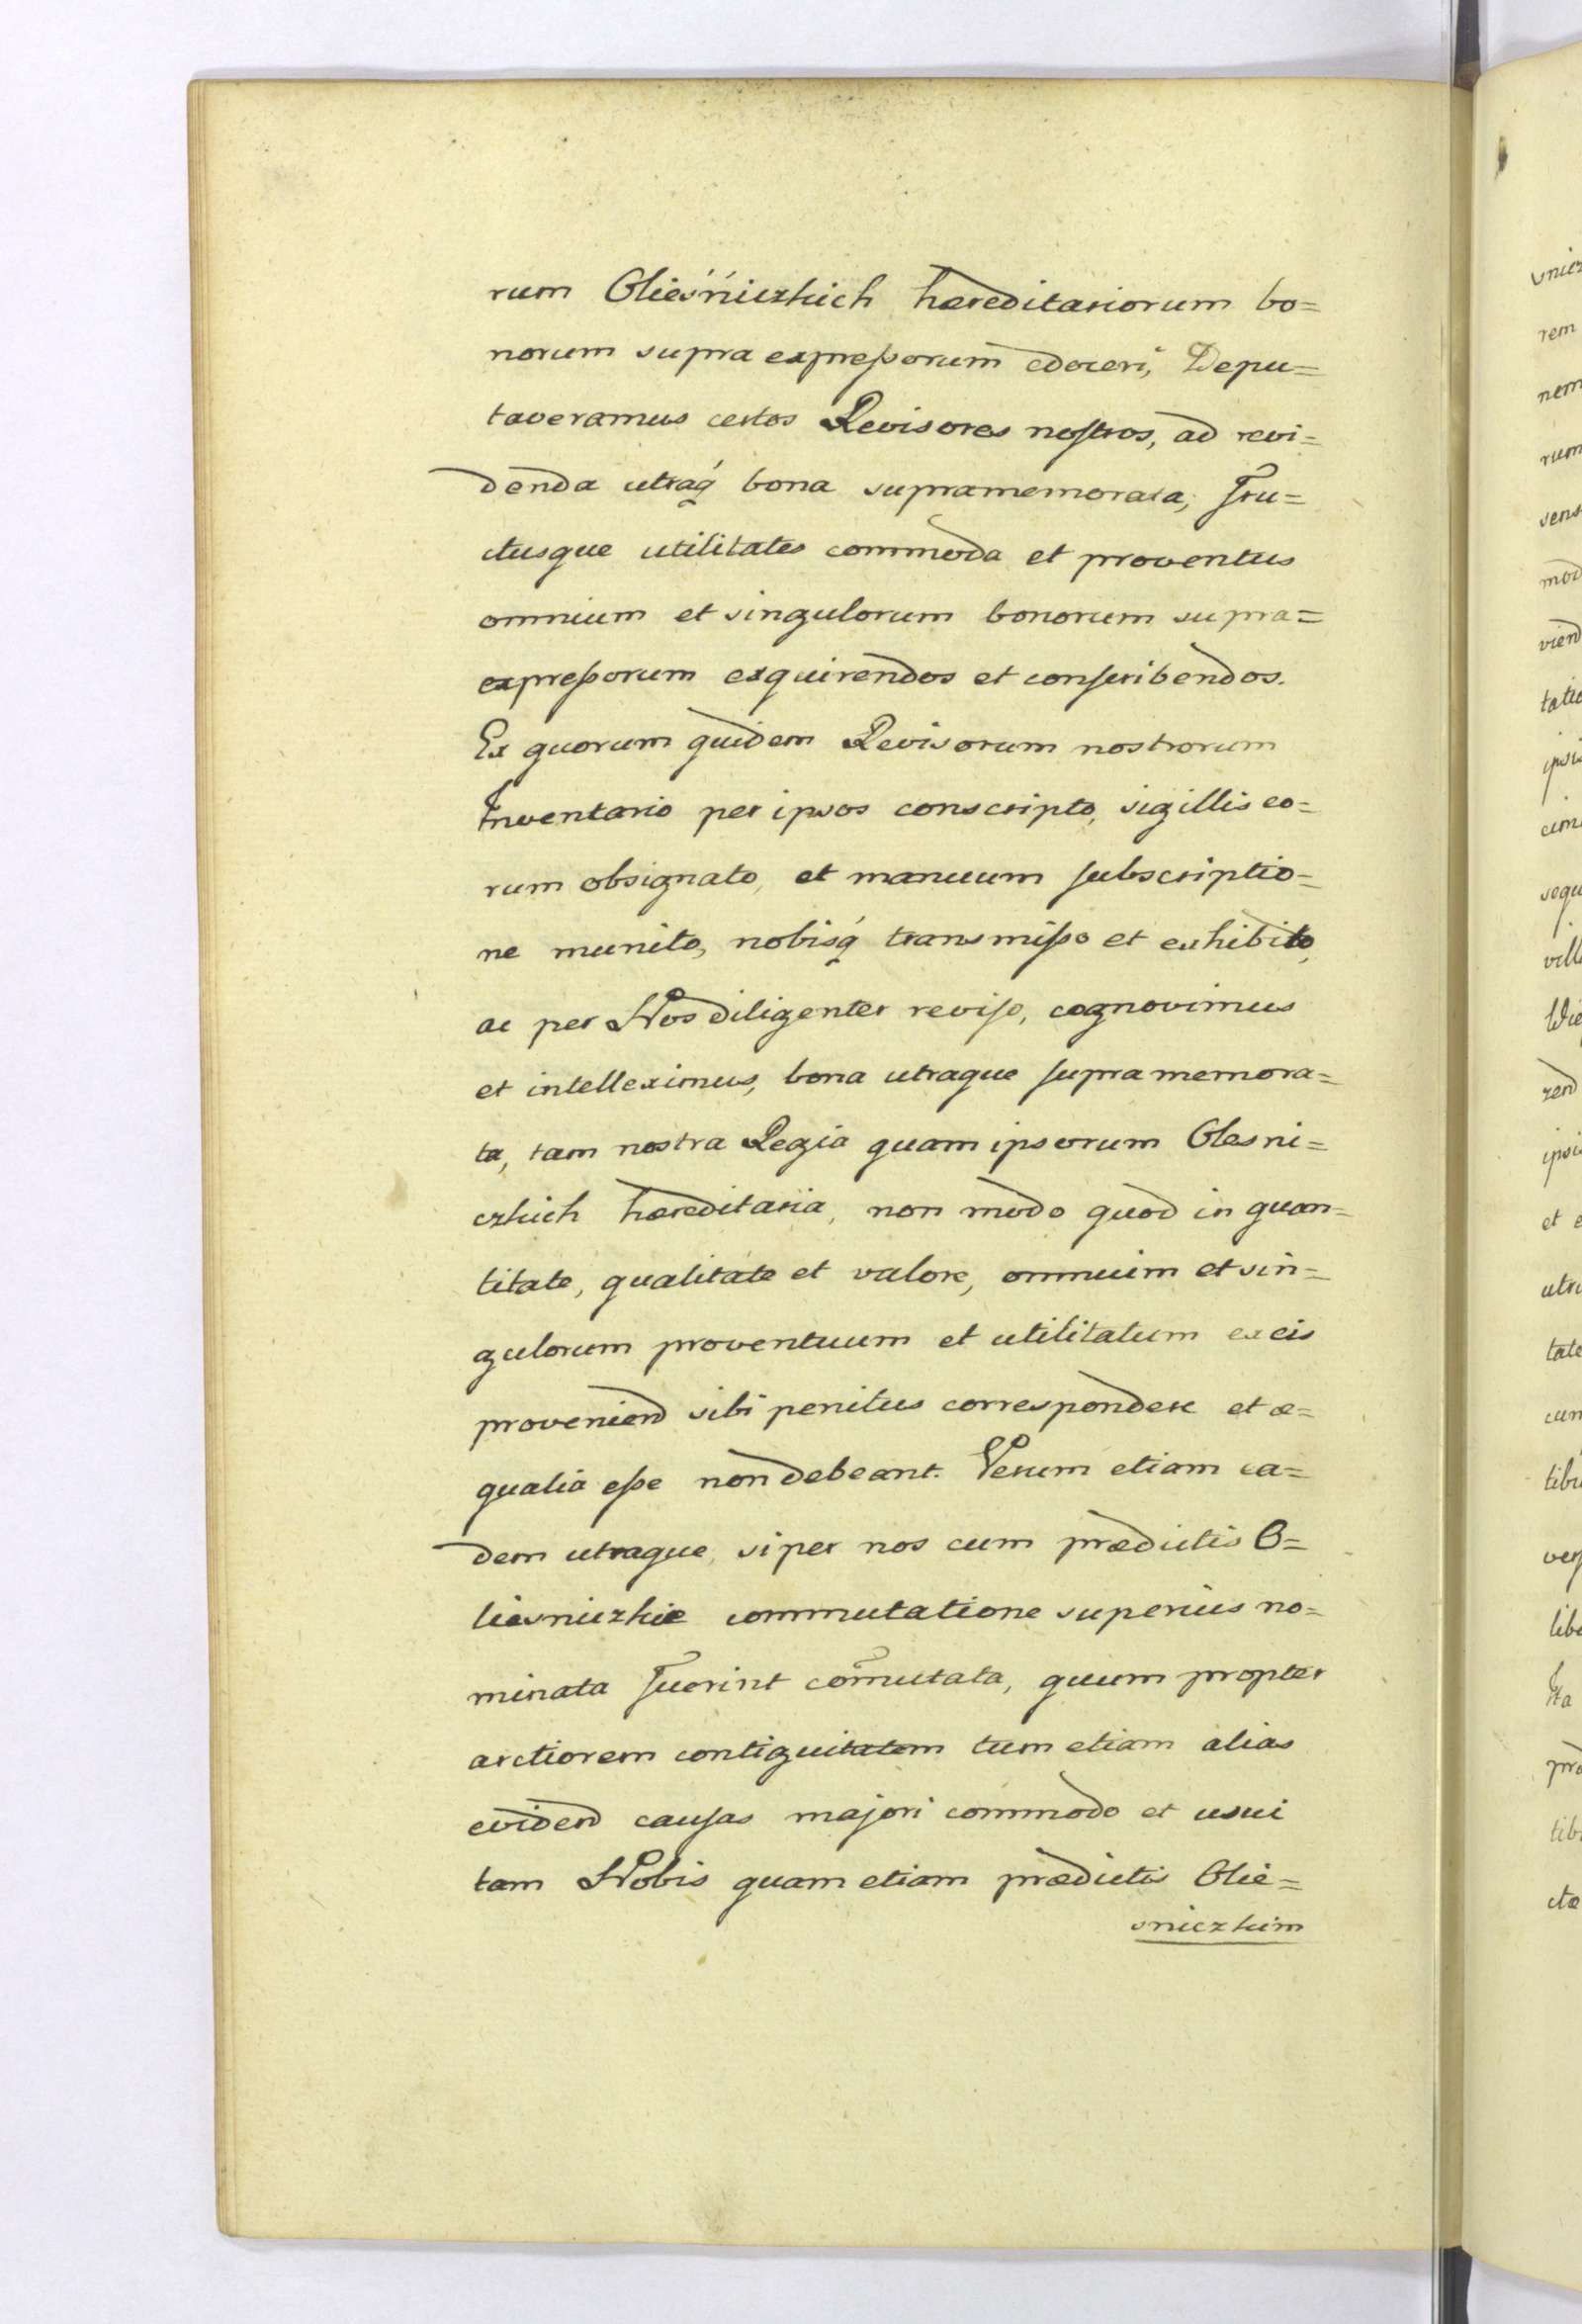 rum Olieśńiczkich hæreditariorum bo=
norum supra expreſsorum edoceri, Depu=
taveramus certos Revisores noſtros, ad revi=
denda utraq́ bona supramemorata, Fru=
ctusque utilitates commoda et proventus
omnium et singulorum bonorum supra=
expreſsorum exquirendos et conſcribendos.
Ex quorum quidem Revisorum nostrorum
Inventario per ipsos conscripto, sigillis eo=
rum obsignato, et manuum ſubscriptio=
ne munito, nobisq́ transmiſso et exhibito,
ac per Nos diligenter reviſo, cognovimus
et intelleximus, bona utraque ſupra memora=
ta, tam nostra Regia quam ipsorum Olesni=
czkich hæreditaria, non modo quod in quan=
titate, qualitate et valore, omnium et sin=
gulorum proventuum et utilitatum ex eis
proveniend sibi penitus correspondere et æ=
qualia eſse non debeant. Verum etiam ea=
dem utraque, si per nos cum prædictis O=
liesniczkie commutatione superius no=
minata Fuerint com̃utata, quum propter
arctiorem contiguitatem tum etiam alias
evidend cauſas majori commodo et usui
tam Nobis quam etiam prædictis Olie=
sniczkim
vnicz
rem
nem
rum
sens
mod
viend
tatio
ipsi
cim
sequ
vill
Wie
zend
ipsi
et e
utr
tate
cum
tibu
verſ
libe
Ita
pro
tib
ctæ